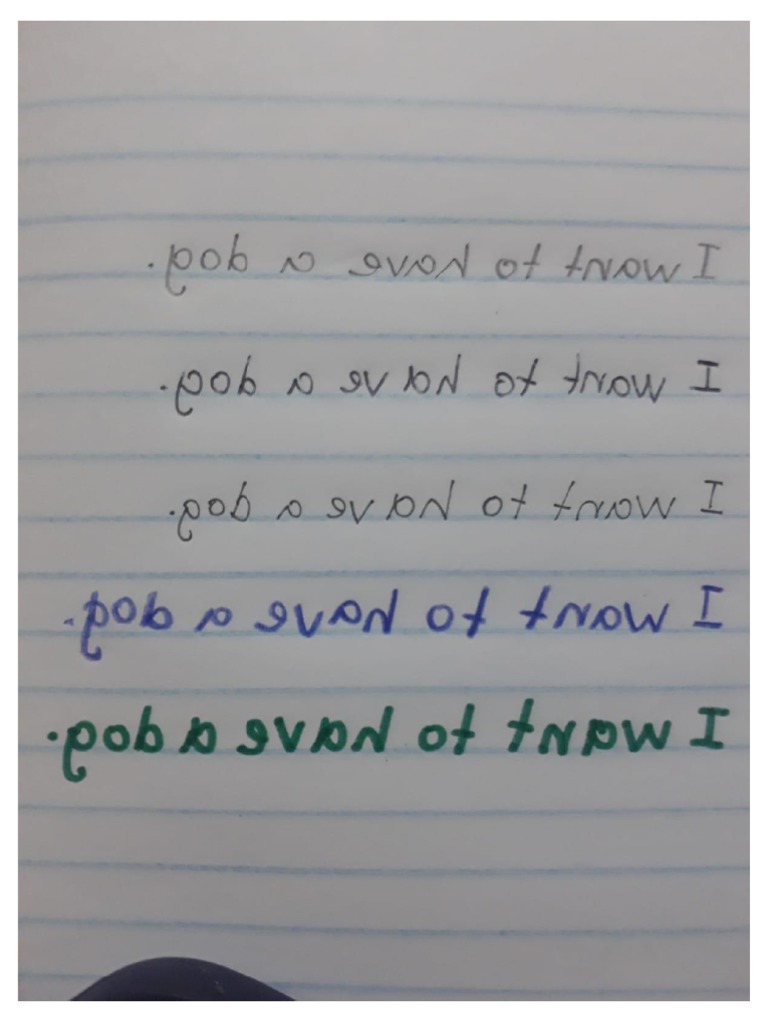 I want to have a dog.
I want to have a dog.
I want to have a dog.
I want to have a dog.
I want to have a dog.